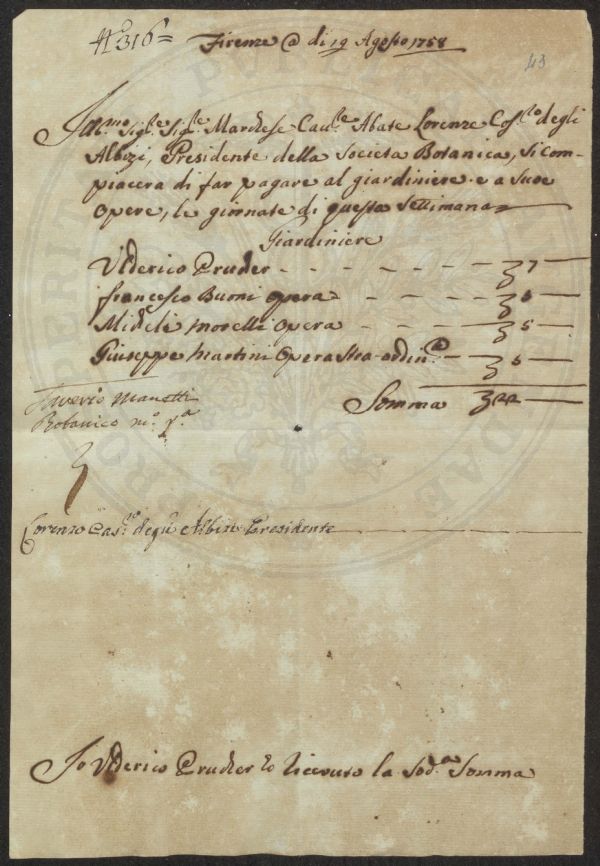 N.° 316 =
Firenze @ di 19 Agosto 1758
43
Ill.mo Sig.re Sig.re Marchese Cav.re Abate Lorenzo Cos.to degli
Albizi, Presidente della Società Botanica, si com-
piacerà di far pagare al giardiniere e a sue
Opere, le giornate di questa Settimana
Giardiniere
Ulderico Pruder - - - - - - - 7
Francesco Buoni opera - - - - 5
Michele Morelli opera - - - - 5
Giuseppe Martini Opera stra-ordin.a - 5
Somma 22
Saverio Manetti
Botanico m.o p.a
Lorenzo Cas.to degli Albizi Presidente
Io Ulderico Pruder ho ricevuto la Sod.a Somma